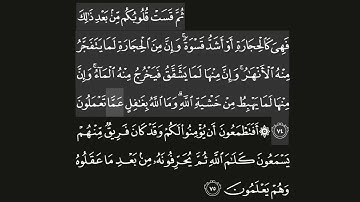 ثُمَّ قَسَتْ قُلُوبُكُم مِّنۢ بَعْدِ ذَٰلِكَ
فَهِىَ كَٱلْحِجَارَةِ أَوْ أَشَدُّ قَسْوَةً ۚ وَإِنَّ مِنَ ٱلْحِجَارَةِ لَمَا يَتَفَجَّرُ
مِنْهُ ٱلْأَنْهَـٰرُ ۚ وَإِنَّ مِنْهَا لَمَا يَشَّقَّقُ فَيَخْرُجُ مِنْهُ ٱلْمَآءُ ۚ وَإِنَّ
مِنْهَا لَمَا يَهْبِطُ مِنْ خَشْيَةِ ٱللَّهِ ۗ وَمَا ٱللَّهُ بِغَـٰفِلٍ عَمَّا تَعْمَلُونَ
٧٤ ۞ أَفَتَطْمَعُونَ أَن يُؤْمِنُوا۟ لَكُمْ وَقَدْ كَانَ فَرِيقٌ مِّنْهُمْ
يَسْمَعُونَ كَلَـٰمَ ٱللَّهِ ثُمَّ يُحَرِّفُونَهُۥ مِنۢ بَعْدِ مَا عَقَلُوهُ
وَهُمْ يَعْلَمُونَ ٧٥